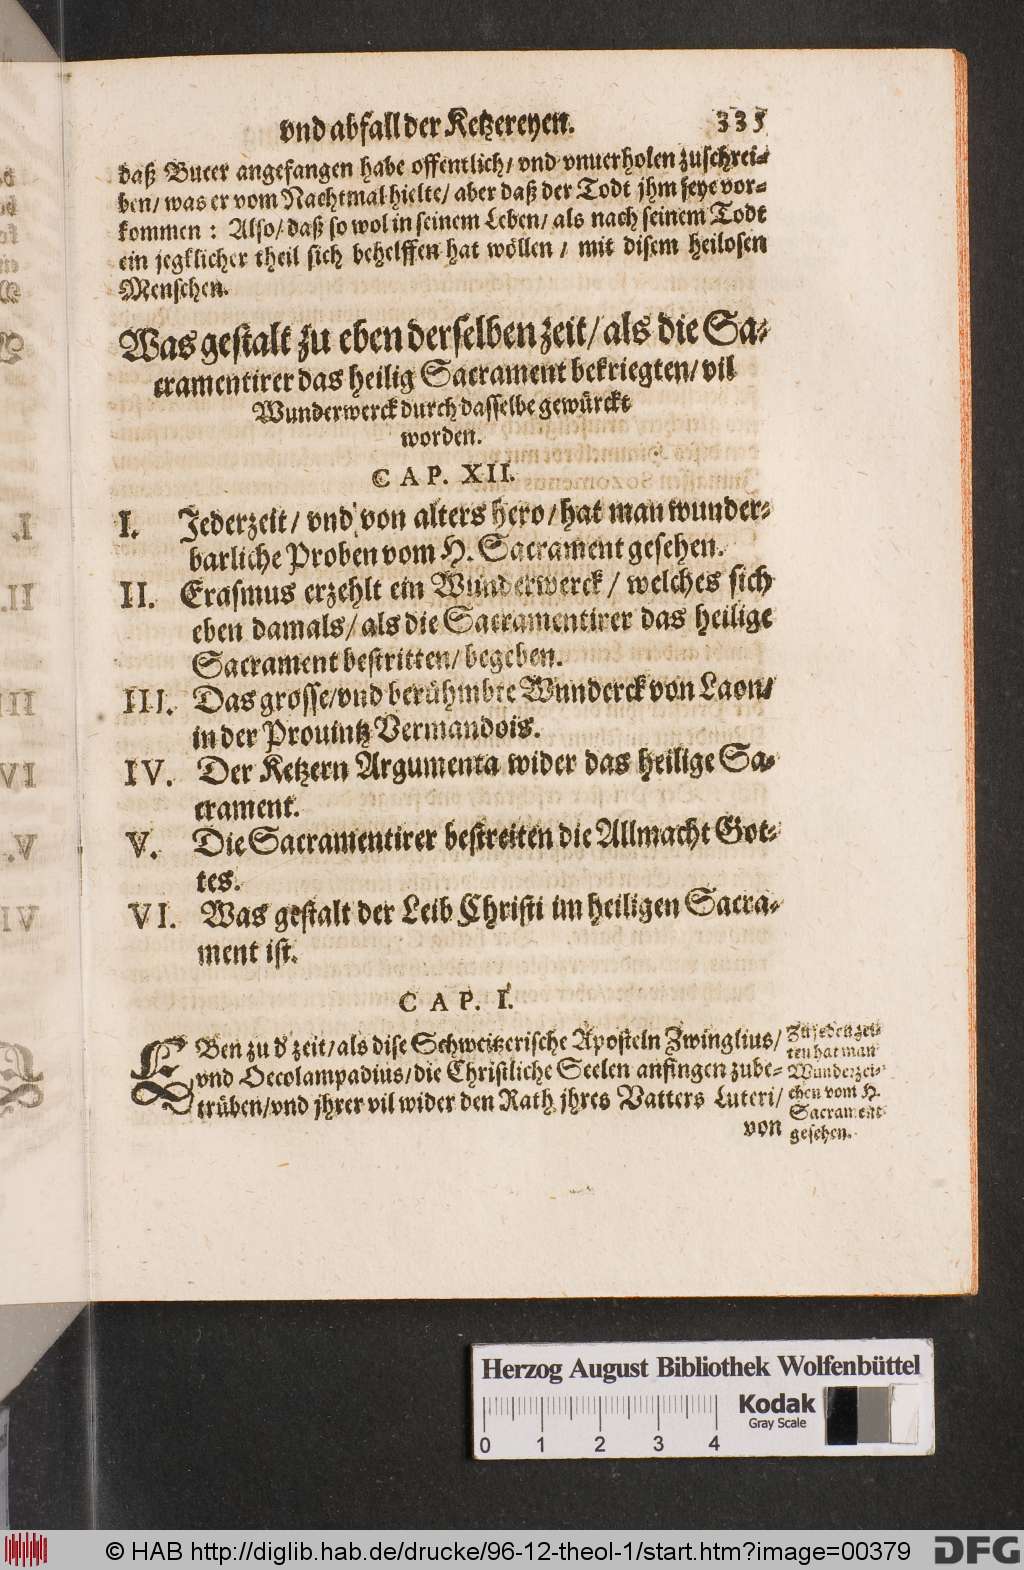 vnd abfall der Ketzereyen. 335
daß Bucer angefangen habe offentlich/ vnd vnuerholen zuschrei-
ben/ was er vom Nachtmal hielte/ aber daß der Todt jhm seye vor-
kommen : Also/ daß so wol in seinem Leben/ als nach seinem Todt
ein jegklicher theil sich behelffen hat wöllen / mit disem heilosen
Menschen.
Was gestalt zu eben derselben zeit/ als die Sa-
cramentirer das heilig Sacrament bekriegten/ vil
Wunderwerck durch dasselbe gewürckt
worden.
CAP. XII.
I. Jederzeit/ vnd von alters hero/ hat man wunder-
barliche Proben vom H. Sacrament gesehen.
II. Erasmus erzehlt ein Wunderwerck / welches sich
eben damals/ als die Sacramentirer das heilige
Sacrament bestritten/ begeben.
III. Das grosse/ vnd berühmbte Wunderck von Laon/
in der Prouintz Vermandois.
IV. Der Ketzern Argumenta wider das heilige Sa-
crament.
V. Die Sacramentirer bestreiten die Allmacht Got-
tes.
VI. Was gestalt der Leib Christi im heiligen Sacra-
ment ist.
CAP. I.
EBen zu d' zeit/ als dise Schweitzerische Aposteln Zwinglius/
vnd Oecolampadius/ die Christliche Seelen anfingen zube-
trüben/ vnd jhrer vil wider den Rath jhres Vatters Luteri/
von
Zu jeden zei-
ten hat man
Wunderzei-
chen vom H.
Sacrament
gesehen.
I.
II.
III
IV
V.
VI
Herzog August Bibliothek Wolfenbüttel
Kodak
Gray Scale
0 1 2 3 4
© HAB http://diglib.hab.de/drucke/96-12-theol-1/start.htm?image=00379
DFG